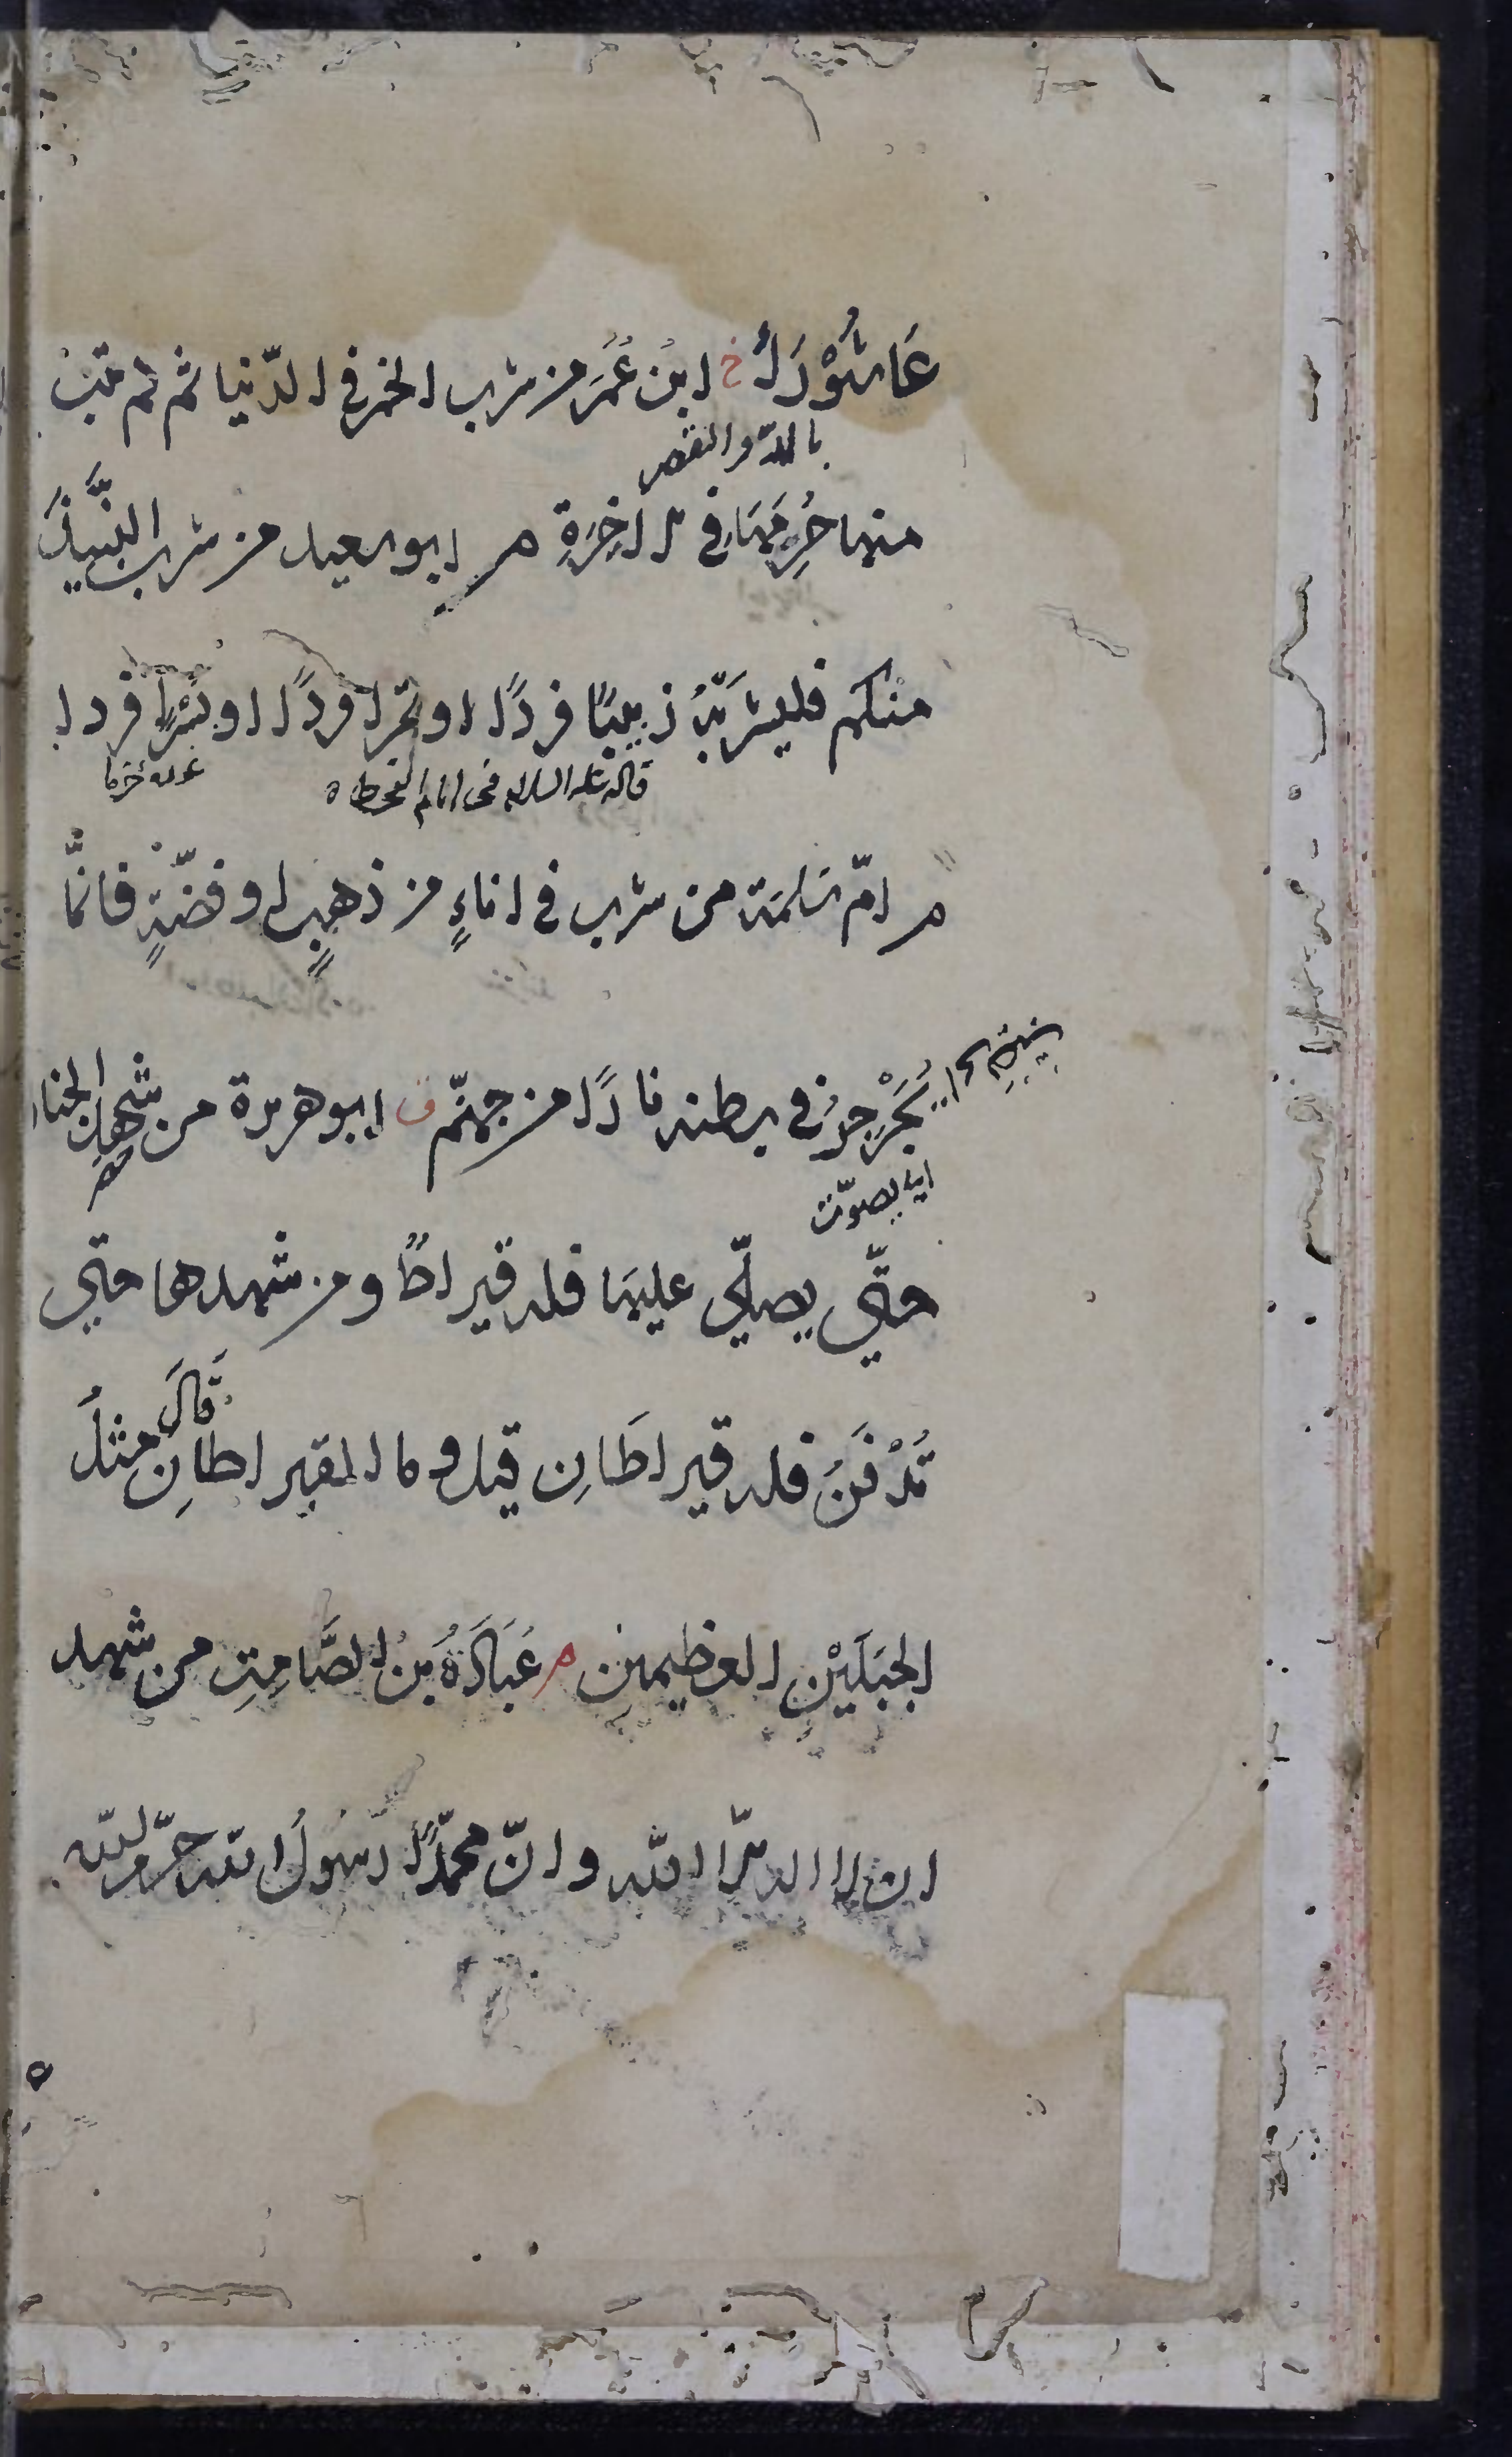 عَاشُوْرَاءُ خ ابنُ عُمَرَ من شرب الخمر في الدّنيا ثم لم يتب
بالمدّ والقصر
منها حُرِمَهَا في الاخِرَةِ م ابو سعيد من شرب النَّبِيْذَ
منكم فليشرَبْهُ زبيبًا فردًا او تمرا فردًا او بُسْرًا فردا
قاله عليه السلام في ايام القحط
م امّ سَلمَة من شرب في اناءٍ من ذهبٍ او فضّةٍ فانَّما
يُجَرْجِرُ في بطنه نارًا من جهنّم ق ابو هريرة من شهد الجنا
اي يصوّت
حتّي يصلّي عليهَا فله قيراطٌ ومن شهدها حتي
تُدْفَنَ فله قيراطَانِ قيل وما القيراطانِ قالَ مثلُ
الجبَلَيْنِ العظيمين م عُبَادَةُ بنُ الصَّامِتِ من شهد
ان لا اله الّا الله وانّ محمّدًا رسولُ الله حرّم الله